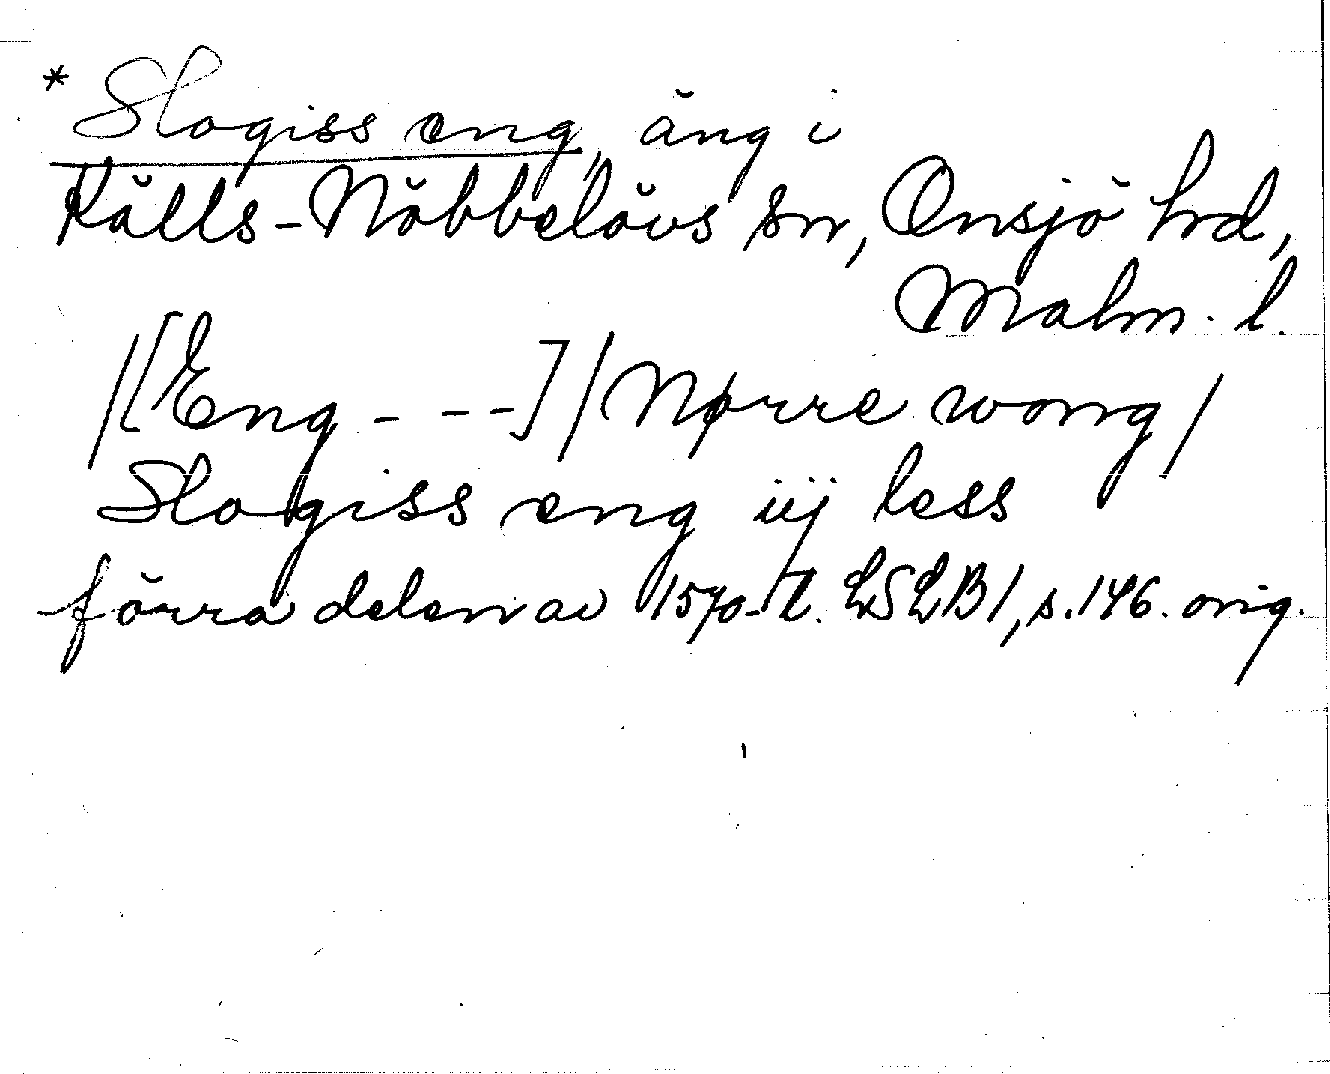 * Slogiss eng, äng i
Källs-Nöbbelövs sn, Onsjö hrd,
Malm. l.
/[Eng - - -]/Nørre wong/
Slogiss eng iij less
förra delen av 1570-t. LSLB1, s. 146. orig.